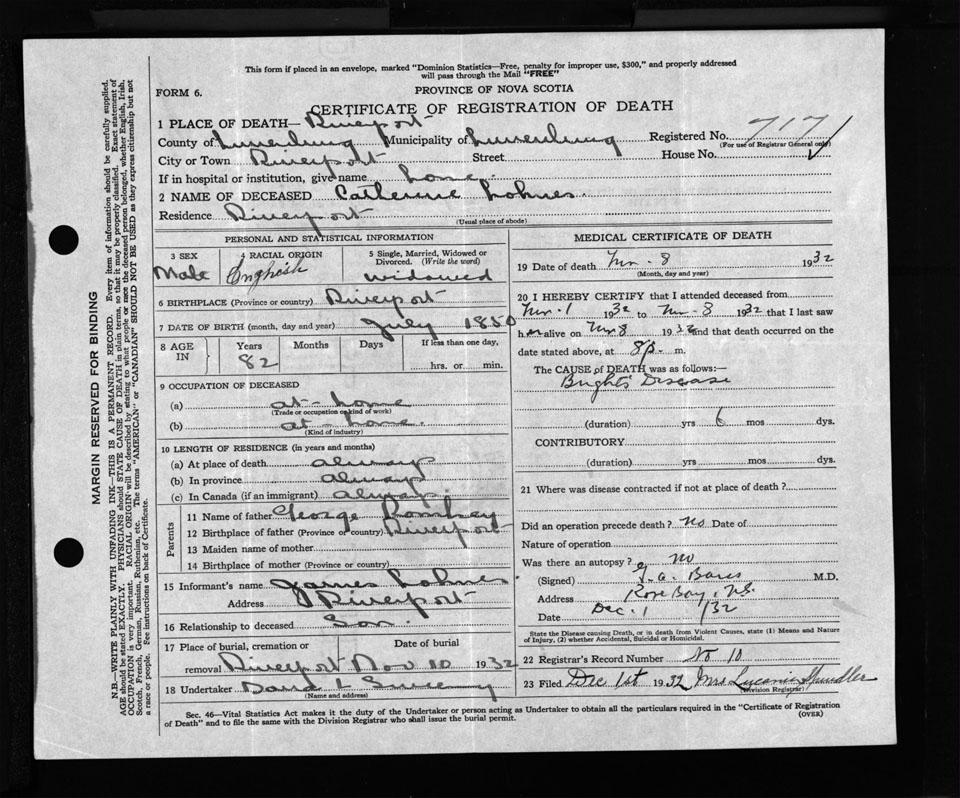 This form if placed in an envelope, marked "Dominion Statistics—Free, penalty for improper use, $300," and properly addressed
will pass through the Mail "FREE"
FORM 6.
PROVINCE OF NOVA SCOTIA
CERTIFICATE OF REGISTRATION OF DEATH
1 PLACE OF DEATH— Riverport
County of Lunenburg Municipality of Lunenburg Registered No. 7171
(For use of Registrar General only)
City or Town Riverport Street House No.
If in hospital or institution, give name home.
2 NAME OF DECEASED Catherine Lohnes.
Residence Riverport
(Usual place of abode)
PERSONAL AND STATISTICAL INFORMATION
3 SEX 4 RACIAL ORIGIN 5 Single, Married, Widowed or
Divorced. (Write the word)
Male English widowed
6 BIRTHPLACE (Province or country) Riverport
7 DATE OF BIRTH (month, day and year) July 1850
8 AGE IN Years Months Days If less than one day,
82 hrs. or min.
9 OCCUPATION OF DECEASED
(a) at-home
(Trade or occupation or kind of work)
(b) at-home.
(Kind of industry)
10 LENGTH OF RESIDENCE (in years and months)
(a) At place of death always
(b) In province always
(c) In Canada (if an immigrant) always.
Parents
11 Name of father George
12 Birthplace of father (Province or country) Riverport
13 Maiden name of mother
14 Birthplace of mother (Province or country)
15 Informant's name James Lohnes.
Address Riverport
16 Relationship to deceased Son.
17 Place of burial, cremation or Date of burial
removal Riverport Nov 10 1932
18 Undertaker David L
(Name and address)
MEDICAL CERTIFICATE OF DEATH
19 Date of death Nov. 8 1932
(Month, day and year)
20 I HEREBY CERTIFY that I attended deceased from
Nov. 1 1932 to Nov. 8 1932 that I last saw
her alive on Nov 8 1932 and that death occurred on the
date stated above, at 8 p. m.
The CAUSE of DEATH was as follows:
Bright's Disease
(duration) yrs 6 mos dys.
CONTRIBUTORY
(duration) yrs mos dys.
21 Where was disease contracted if not at place of death?
Did an operation precede death? no Date of
Nature of operation
Was there an autopsy? no
(Signed) M.D.
Address Rose Bay, N.S.
Date Dec. 1 /32
State the Disease causing Death, or in death from Violent Causes, state (1) Means and Nature
of Injury, (2) whether Accidental, Suicidal or Homicidal.
22 Registrar's Record Number No 10
23 Filed Dec 1st 1932 Mrs Spindler
Division Registrar
Sec. 46—Vital Statistics Act makes it the duty of the Undertaker or person acting as Undertaker to obtain all the particulars required in the "Certificate of Registration
of Death" and to file the same with the Division Registrar who shall issue the burial permit.
(OVER)
MARGIN RESERVED FOR BINDING
N.B.—WRITE PLAINLY WITH UNFADING INK—THIS IS A PERMANENT RECORD. Every item of information should be carefully supplied.
AGE should be stated EXACTLY. PHYSICIANS should STATE CAUSE OF DEATH in plain terms, so that it may be properly classified. Exact statement of
OCCUPATION is very important. RACIAL ORIGIN will be described by stating to what people or race the deceased person belonged, whether English, Irish,
Scotch, French, German, Russian, Ruthenian, etc. The terms "AMERICAN" or "CANADIAN" SHOULD NOT BE USED as they express citizenship but not
a race or people. See instructions on back of Certificate.